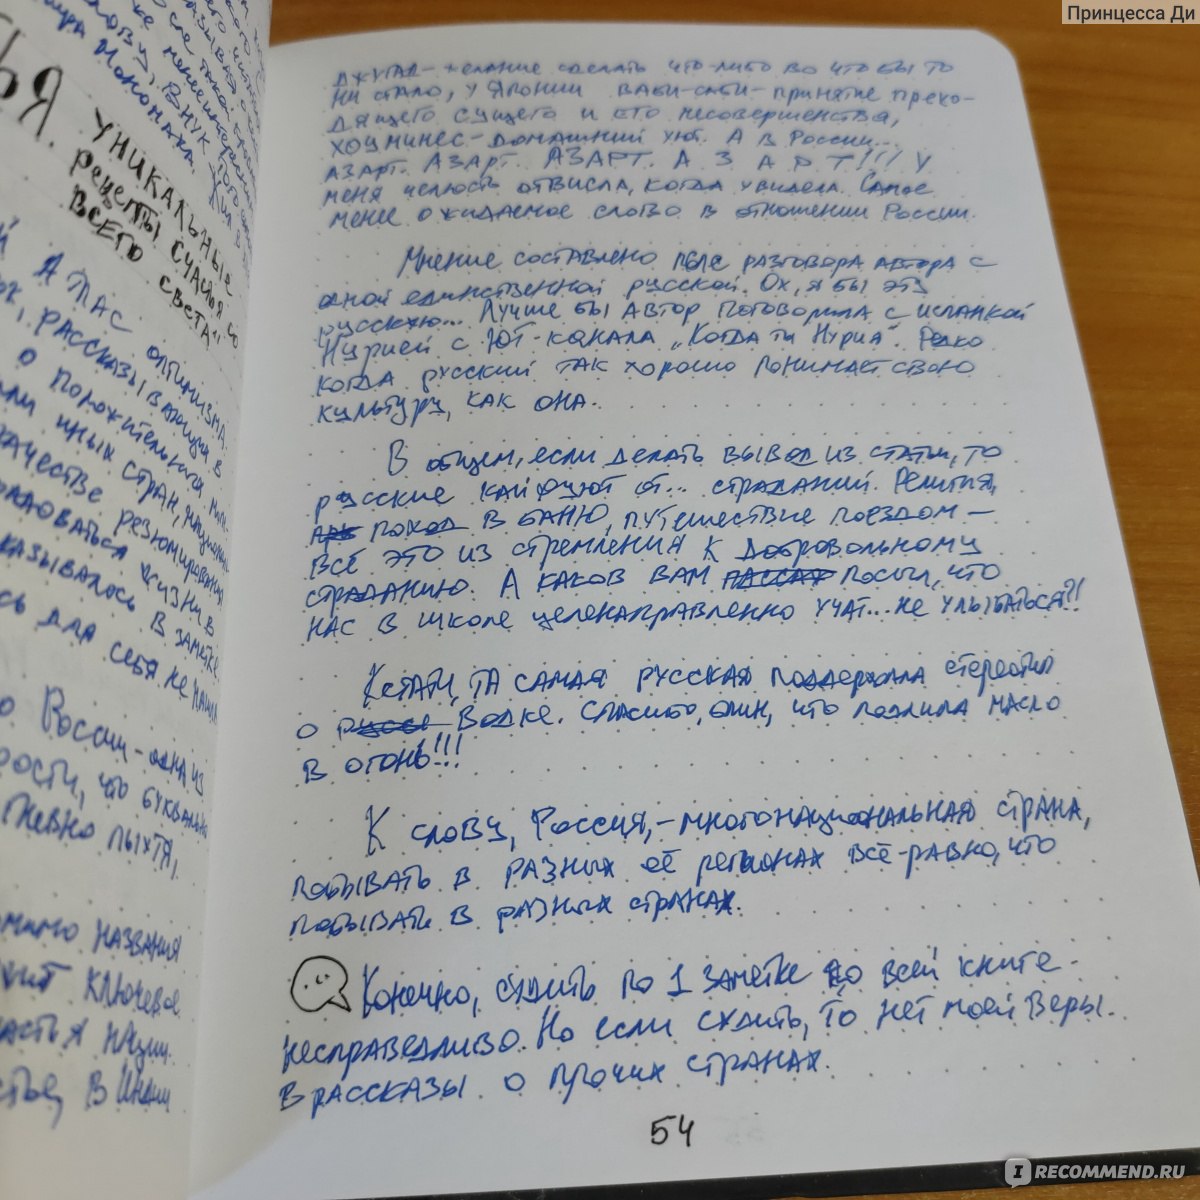 Принцесса Ди
УНИКАЛЬНЫЕ
рецепты счастья со
всего света"
АТЛАС оптимизма
рассказывающий в
о положительных
иных стран,
качестве резюмирования
радоваться жизни в
оказывалось. В заметке
для себя не нашла
Россия - одна из
что буквально
гневно пыхтя,
помимо названия
ключевое
счастья нации.
в Индии
джугад - желание сделать что-либо во что бы то
ни стало, у Японии ваби-саби - принятие прехо-
дящего сущего и его несовершенства,
хоуминес - домашний уют. А в России...
азарт. Азарт. АЗАРТ. А З А Р Т!!! У
меня челюсть отвисла, когда увидела. Самое
менее ожидаемое слово в отношении России.
Мнение составлено после разговора автора с
одной единственной русской. Ох, я бы эту
русскую... Лучше бы автор поговорила с испанкой
Нурией с ЮТ-канала „Когда ты Нурия". Редко
когда русский так хорошо понимает свою
культуру, как она.
В общем, если делать вывод из статьи, то
русские кайфуют от... страданий. Религия,
поход в баню, путешествие поездом -
всё это из стремления к добровольному
страданию. А каков вам посыл, что
нас в школе целенаправленно учат... не улыбаться?!
Кстати, та самая русская поддержала стереотип
о водке. Спасибо, блин, что подлила масло
в огонь!!!
К слову, Россия, - многонациональная страна,
побывать в разных её регионах всё-равно, что
побывать в разных странах.
Конечно, судить по 1 заметке во всей книге -
несправедливо. Но если судить, то нет моей веры
в рассказы о прочих странах.
54
IRECOMMEND.RU